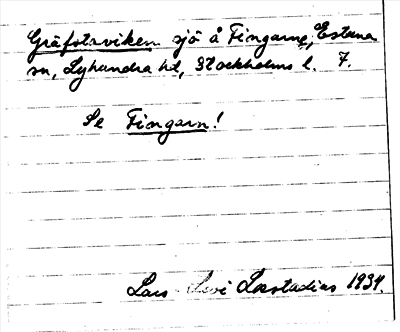 Gräfstaviken sjö å Fingarne, Estuna
sn, Lyhundra hd, Stockholms l. 7.
Se Fingarn!
Lars Levi Læstadius 1934.